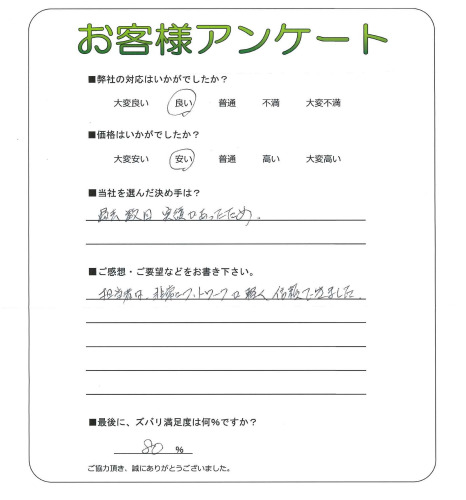 お客様アンケート
■弊社の対応はいかがでしたか？
大変良い 良い 普通 不満 大変不満
■価格はいかがでしたか？
大変安い 安い 普通 高い 大変高い
■当社を選んだ決め手は？
過去数回実績があったため。
■ご感想・ご要望などをお書き下さい。
担当者は、非常にフットワークが軽く信頼できました。
■最後に、ズバリ満足度は何％ですか？
80 ％
ご協力頂き、誠にありがとうございました。